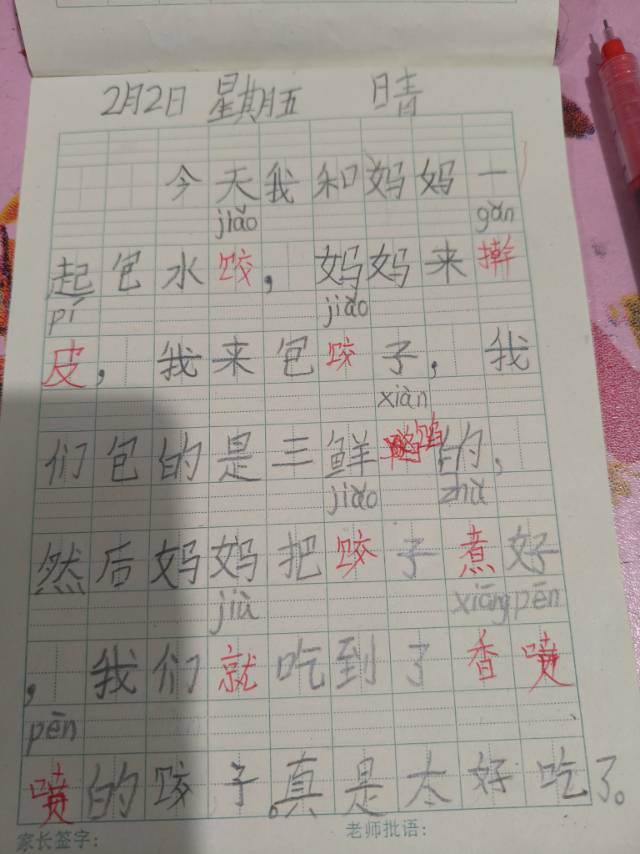 2月2日 星期五 晴
今天我和妈妈一
jiǎo gǎn
起包水饺，妈妈来擀
pí jiǎo
皮，我来包饺子，我
xiàn
们包的是三鲜馅的，
jiǎo zhǔ
然后妈妈把饺子煮好
jiù xiāng pēn
，我们就吃到了香喷
pēn
喷的饺子。真是太好吃了。
家长签字： 老师批语：